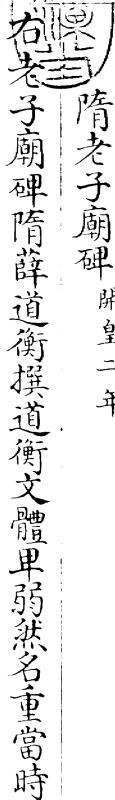 隋老子廟碑開皇二年
右老子廟碑隋薛道衡撰道衡文體卑弱然名重當時